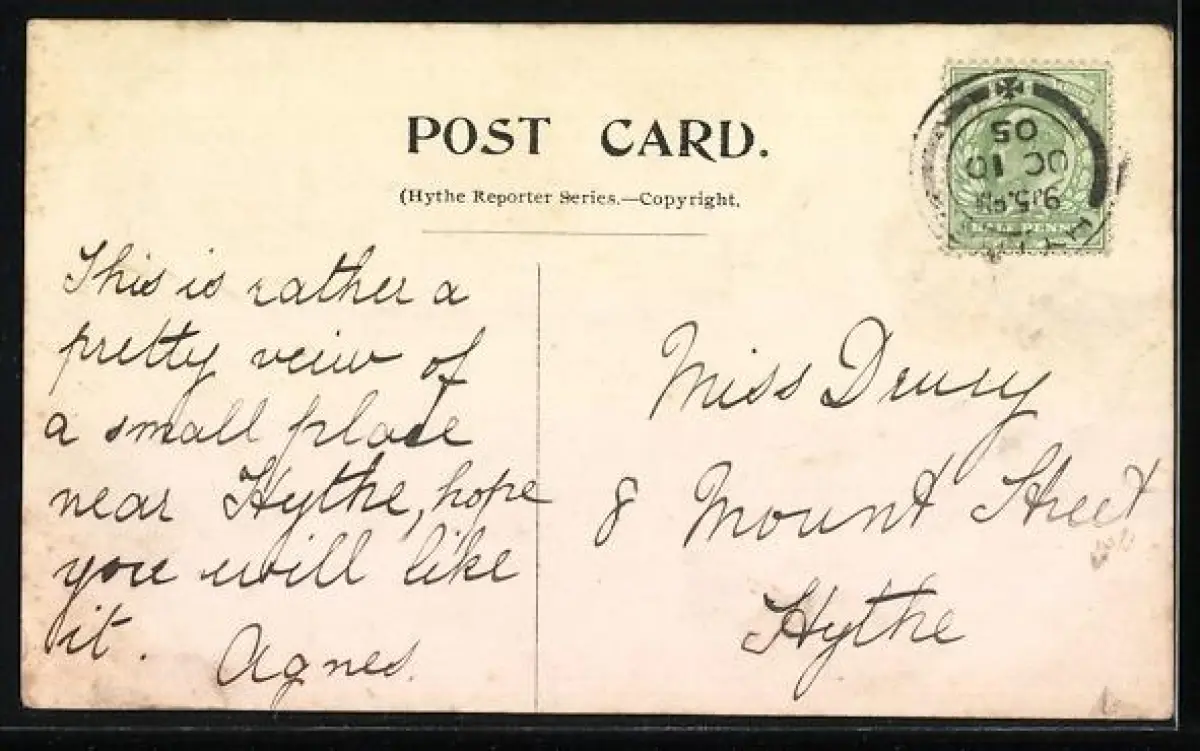 POST CARD.
(Hythe Reporter Series.—Copyright.
This is rather a
pretty veiw of
a small place
near Hythe, hope
you will like
it. Agnes.
Miss Drury
8 Mount Street
Hythe
05
OC 10
HALF PENNY